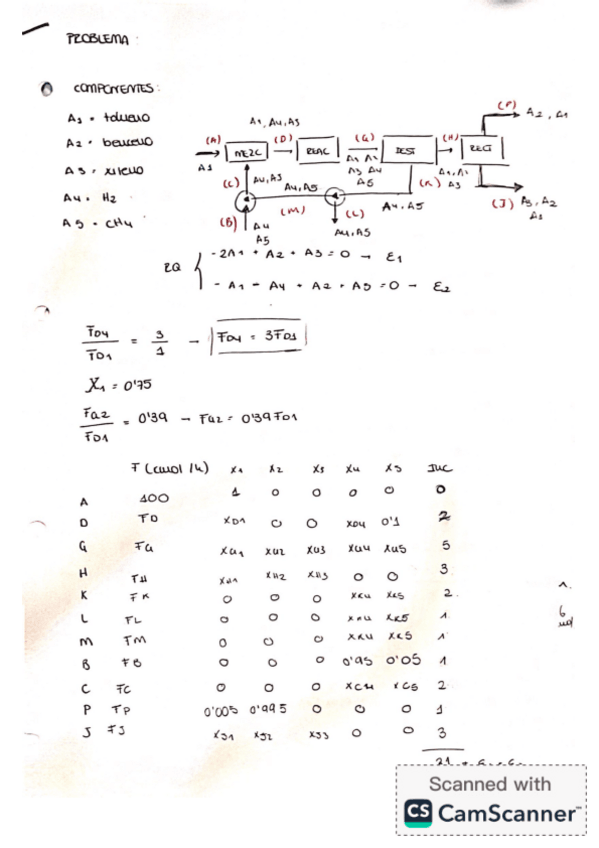 PROBLEMA:
COMPONENTES:
A1 = tolueno
A2 = benceno
A3 = xileno
A4 = H2
A5 = CH4
A1, A4, A5
(A) MEZC (D) REAC (G) DEST (H) RECT (P) A2, A1
A1
A1 A2
A3 A4
A5
A1, A2
A3
(C) A4, A5
A4, A5
(K)
A4, A5
(J) A3, A2
A1
(B) A4
A5
(M)
(L)
A4, A5
RQ
-2A1 + A2 + A3 = 0 → ε1
- A1 - A4 + A2 + A5 = 0 → ε2
FD4 / FD1 = 3 / 1 → FD4 = 3FD1
X1 = 0'75
FG2 / FD1 = 0'39 → FG2 = 0'39 FD1
F (kmol/h) x1 x2 x3 x4 x5 INC
A 100 1 0 0 0 0 0
D FD xD1 0 0 xD4 0'1 2
G FG xG1 xG2 xG3 xG4 xG5 5
H FH xH1 xH2 xH3 0 0 3
K FK 0 0 0 xK4 xK5 2
L FL 0 0 0 xK4 xK5 1
M FM 0 0 0 xK4 xK5 1
B FB 0 0 0 0'95 0'05 1
C FC 0 0 0 xC4 xC5 2
P FP 0'005 0'995 0 0 0 1
J FJ xJ1 xJ2 xJ3 0 0 3
21
Scanned with
CS CamScanner